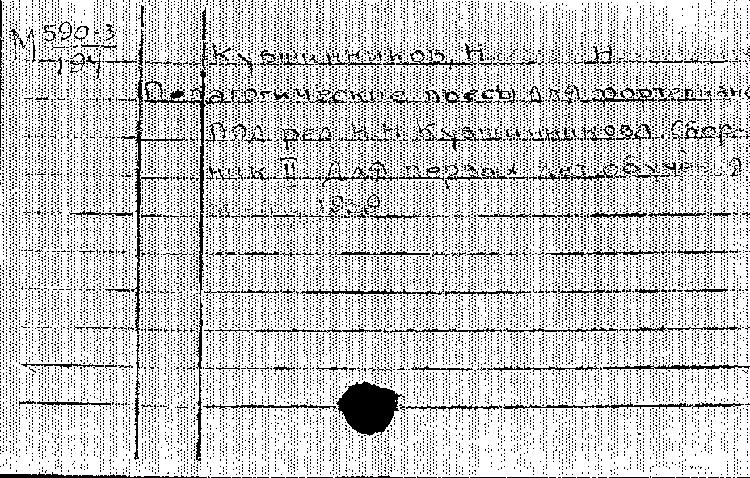 М 590-3
194
Кувшинников, Н. Н.
Педагогические пьесы для фортепиано
Под ред. Н.Н. Кувшинникова. Сбор-
ник II Для первых лет обучен.